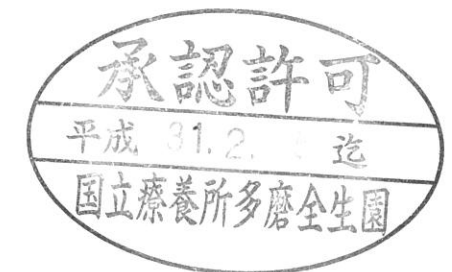 承認許可
平成 31.2. 迄
国立療養所多磨全生園